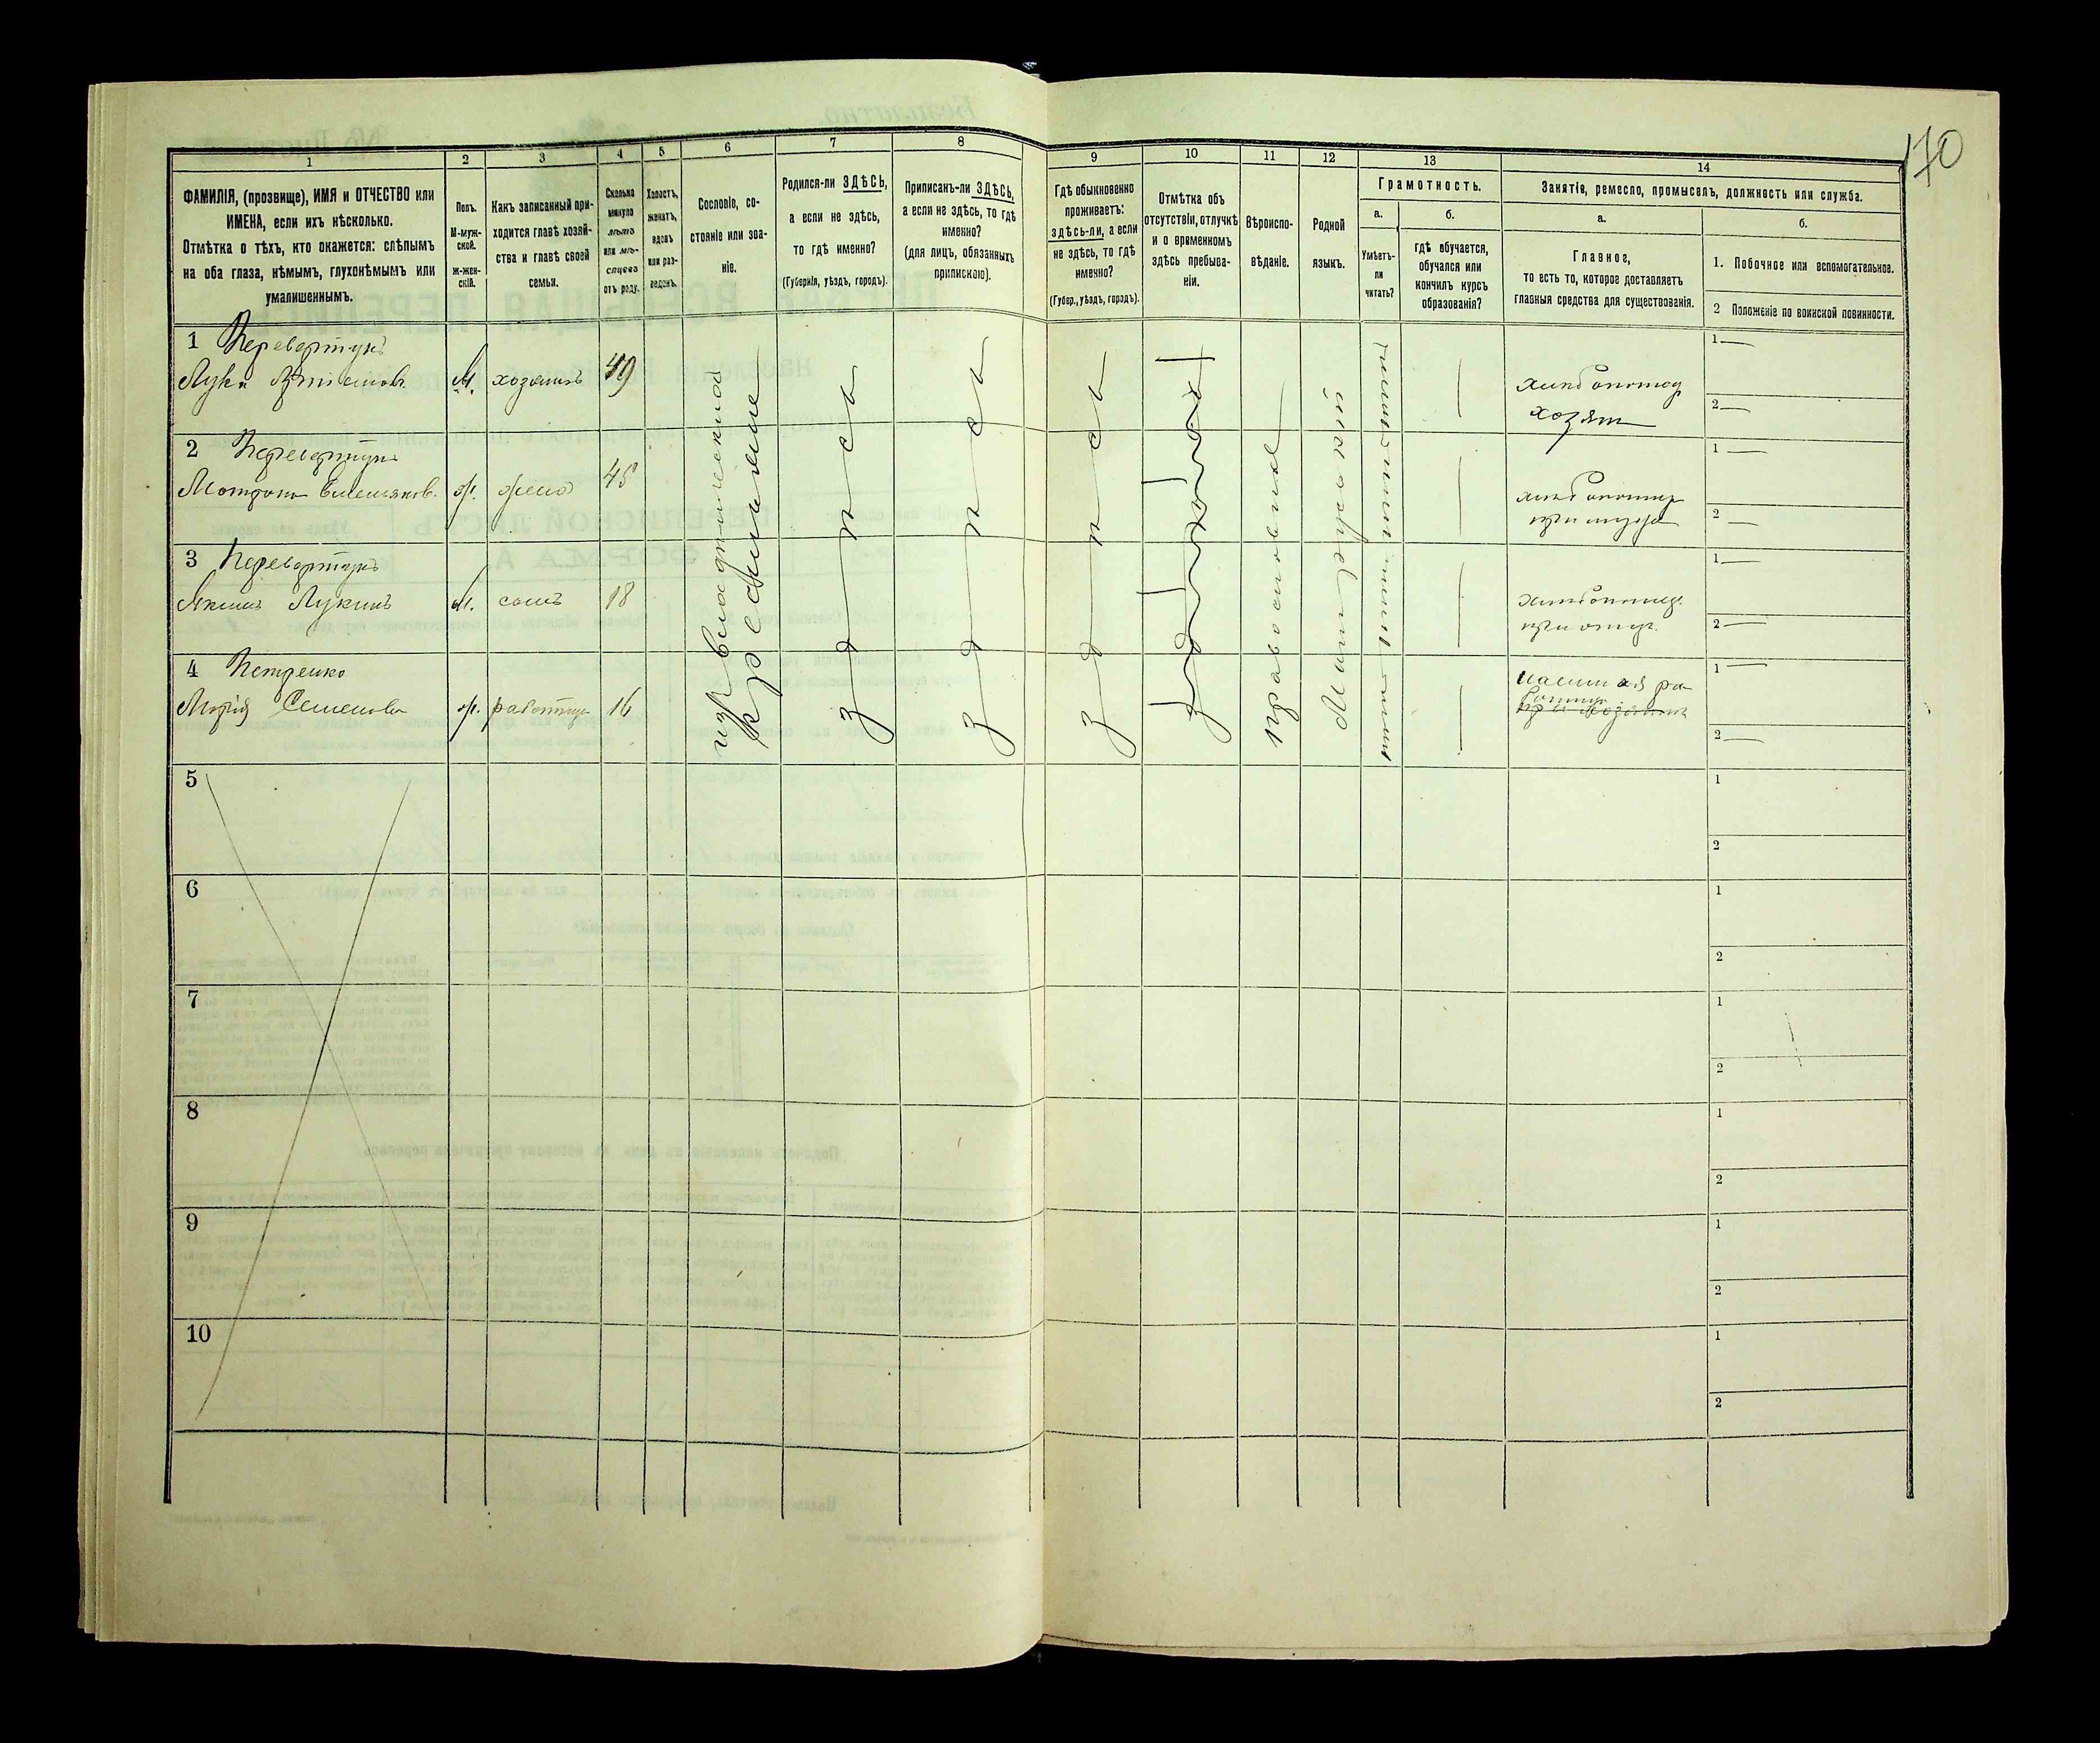 170
1
2
3
4
5
6
7
8
9
10
11
12
13
14
ФАМИЛІЯ, (прозвище), ИМЯ и ОТЧЕСТВО или
ИМЕНА, если ихъ нѣсколько.
Отмѣтка о тѣхъ, кто окажется: слѣпымъ
на оба глаза, нѣмымъ, глухонѣмымъ или
умалишеннымъ.
Полъ.
М-муж-
ской.
Ж-жен-
скій.
Какъ записанный при-
ходится главѣ хозяй-
ства и главѣ своей
семьи.
Сколько
минуло
лѣтъ
или мѣ-
сяцевъ
отъ роду.
Холостъ,
женатъ,
вдовъ
или раз-
веденъ.
Сословіе, со-
стояніе или зва-
ніе.
Родился-ли ЗДѢСЬ,
а если не здѣсь,
то гдѣ именно?
(Губернія, уѣздъ, городъ).
Приписанъ-ли ЗДѢСЬ,
а если не здѣсь, то гдѣ
именно?
(для лицъ, обязанныхъ
припискою).
Гдѣ обыкновенно
проживаетъ:
здѣсь-ли, а если
не здѣсь, то гдѣ
именно?
(Губер., уѣздъ, городъ).
Отмѣтка объ
отсутствіи, отлучкѣ
и о временномъ
здѣсь пребыва-
ніи.
Вѣроиспо-
вѣданіе.
Родной
языкъ.
Грамотность.
а.
Умѣетъ-
ли
читать?
б.
гдѣ обучается,
обучался или
кончилъ курсъ
образованія?
Занятіе, ремесло, промыселъ, должность или служба.
а.
Главное,
то есть то, которое доставляетъ
главныя средства для существованія.
б.
1. Побочное или вспомогательное.
2 Положеніе по воинской повинности.
1 Перевертунъ
Лука Артіемовъ М. хозяинъ 49
хозяин
2 Перевертунъ
Мотрона Емельянов. ж. жена 45
3 Перевертунъ
Якимъ Лукинъ М. сынъ 18
4 Петренко
Марія Семенова ж. работница 16
наемная ра
ботница
изъ владѣльческихъ
крестьянъ
здѣсь
здѣсь
здѣсь
православное
Малорусскій
5
6
7
8
9
10
1
2
1
2
1
2
1
2
1
2
1
2
1
2
1
2
1
2
1
2